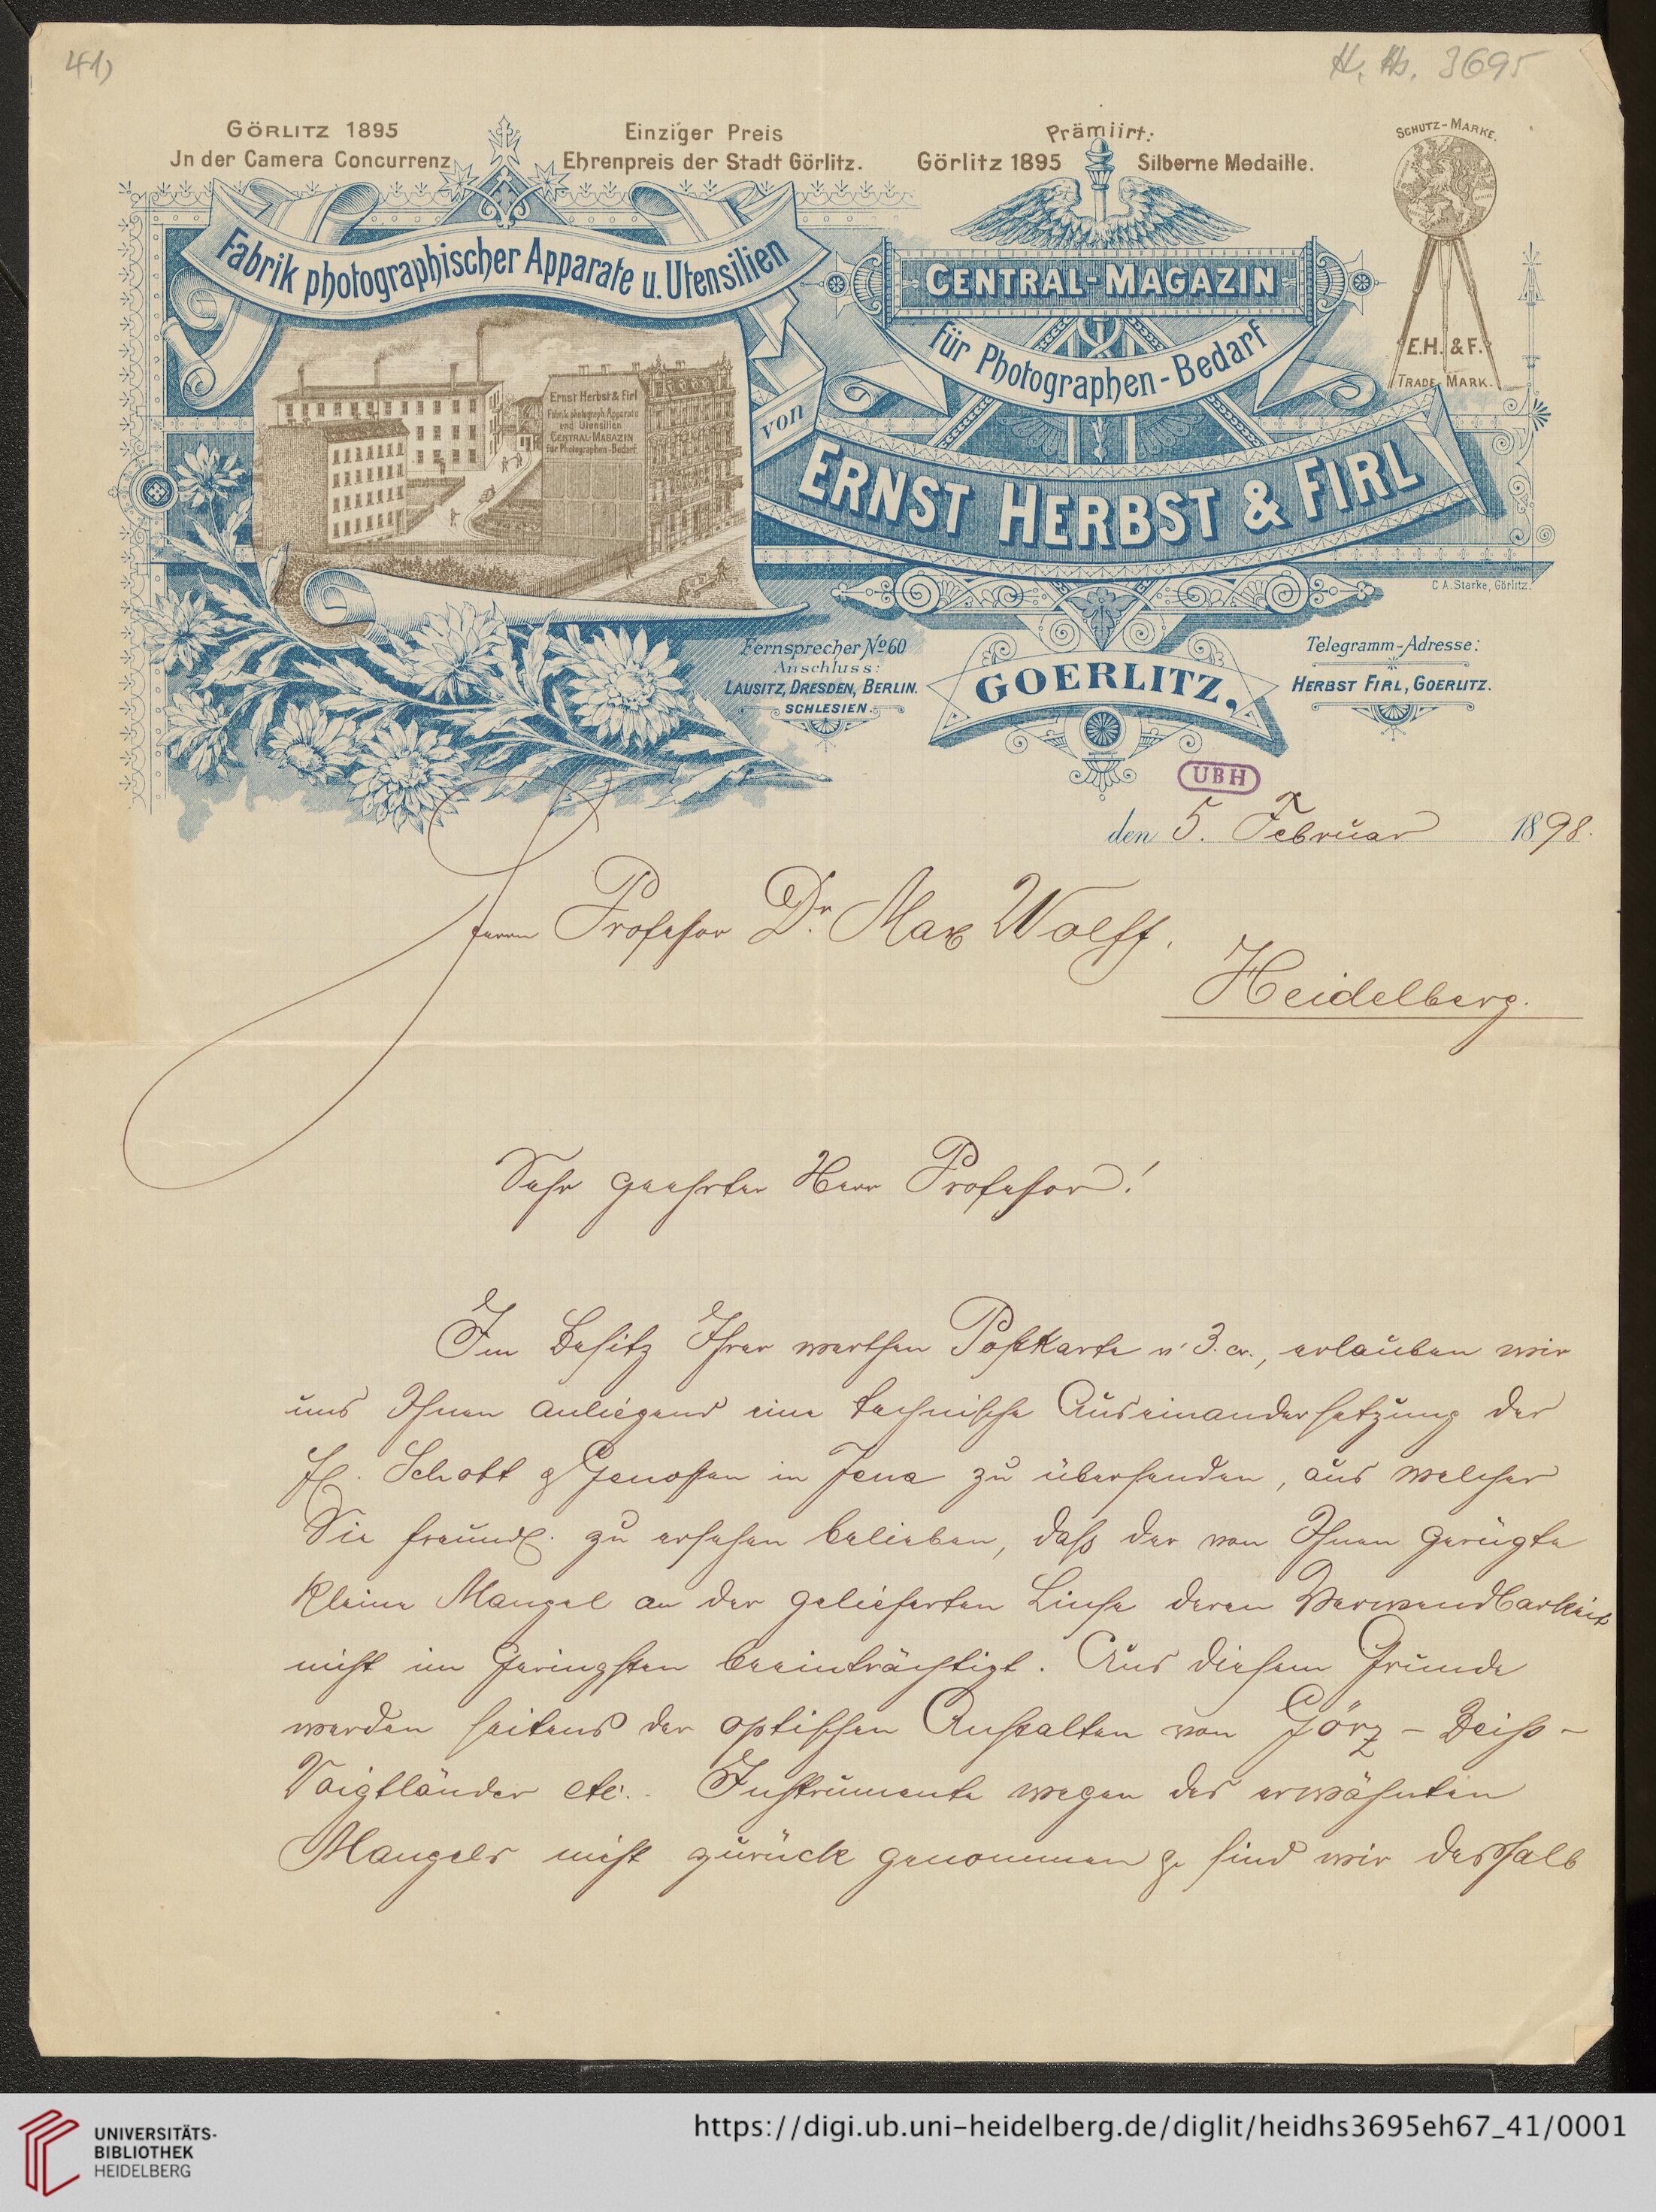 41)
H. Hs. 3695
GÖRLITZ 1895
Jn der Camera Concurrenz
Einziger Preis
Ehrenpreis der Stadt Görlitz.
Prämiirt:
Görlitz 1895 Silberne Medaille.
SCHUTZ-MARKE.
E.H. & F.
TRADE MARK.
Fabrik photographischer Apparate u. Utensilien
Ernst Herbst & Firl
Fabrik photograph. Apparate
und Utensilien
CENTRAL-MAGAZIN
für Photographen-Bedarf.
von
CENTRAL-MAGAZIN
für Photographen-Bedarf
ERNST HERBST & FIRL
C.A. Starke, Görlitz.
Fernsprecher No 60
Anschluss:
LAUSITZ, DRESDEN, BERLIN.
SCHLESIEN.
GOERLITZ,
Telegramm-Adresse:
HERBST FIRL, GOERLITZ.
UBH
den 5. Februar 1898.
Herrn Professor Dr. Max Wolff.
Heidelberg.
Sehr geehrter Herr Professor!
Im Besitz Ihrer werthen Postkarte v. 3. cr., erlauben wir
uns Ihnen anliegend eine technische Auseinandersetzung der
Schott & Genossen in Jena zu übersenden, aus welcher
Sie freundl. zu ersehen belieben, daß der von Ihnen gerügte
kleine Mangel an der gelieferten Linse deren Verwendbarkeit
nicht im Geringsten beeinträchtigt. Aus diesem Grunde
werden seitens der optischen Anstalten von Görz - Zeiss -
Voigtländer etc. Instrumente wegen des erwähnten
Mangels nicht zurück genommen & sind wir deshalb
UNIVERSITÄTS-
BIBLIOTHEK
HEIDELBERG
https://digi.ub.uni-heidelberg.de/diglit/heidhs3695eh67_41/0001